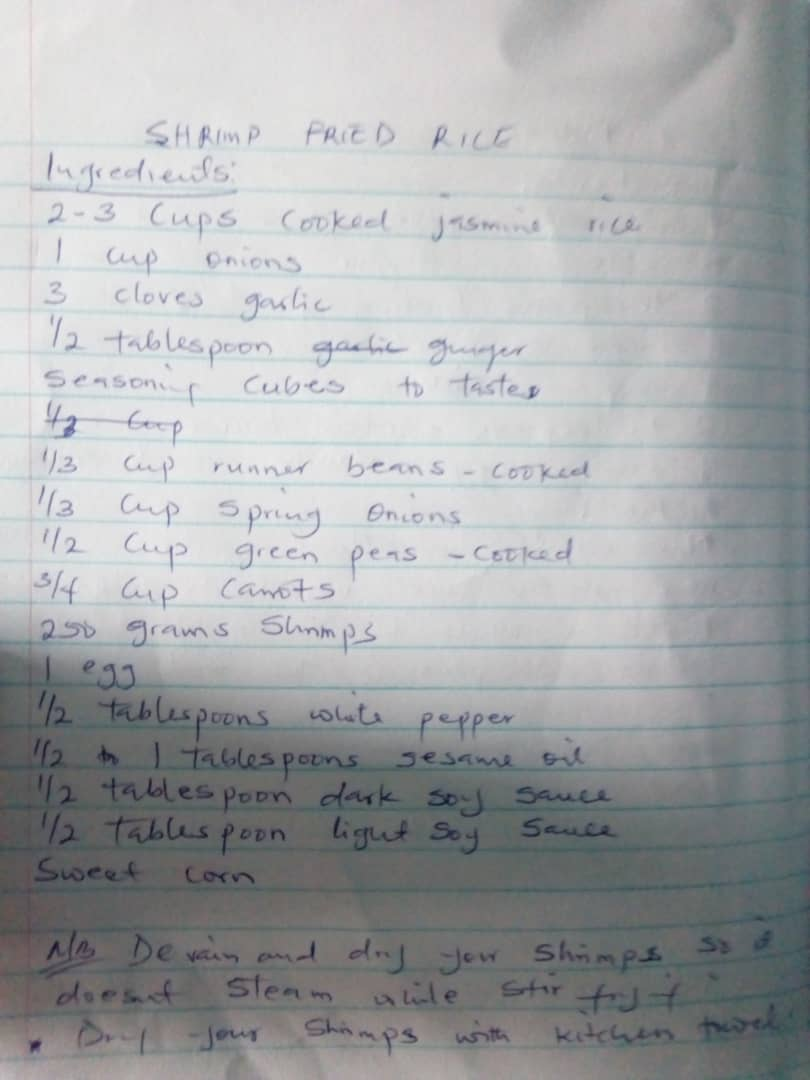 SHRIMP FRIED RICE
Ingredients:
2-3 Cups Cooked jasmine rice
1 cup onions
3 cloves garlic
1/2 tablespoon garlic ginger
Seasoning Cubes to taste
1/3 Cup
1/3 Cup runner beans - cooked
1/3 Cup Spring Onions
1/2 Cup green peas - Cooked
3/4 Cup Carrots
250 grams Shrimps
1 egg
1/2 tablespoons white pepper
1/2 to 1 tablespoons sesame oil
1/2 tablespoon dark soy sauce
1/2 tablespoon light soy Sauce
Sweet corn
N/B Devain and dry your Shrimps so it
doesnt Steam while Stir fry
• Dry your Shrimps with kitchen towel